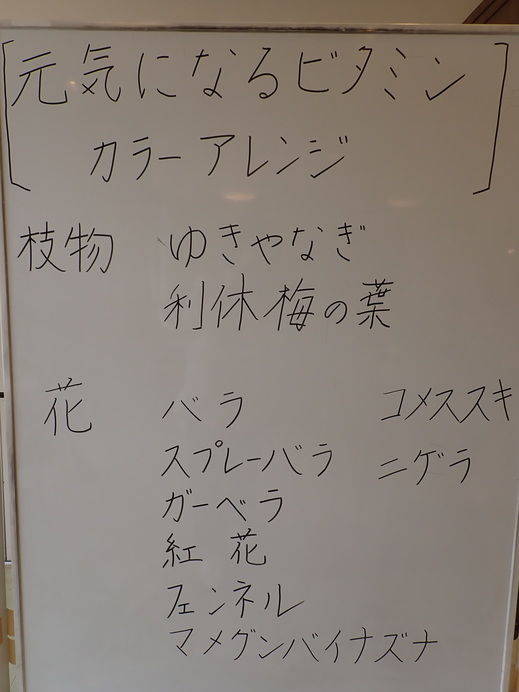 元気になるビタミン
カラーアレンジ
枝物 ゆきやなぎ
利休梅の葉
花 バラ コメススキ
スプレーバラ ニゲラ
ガーベラ
紅花
フェンネル
マメグンバイナズナ